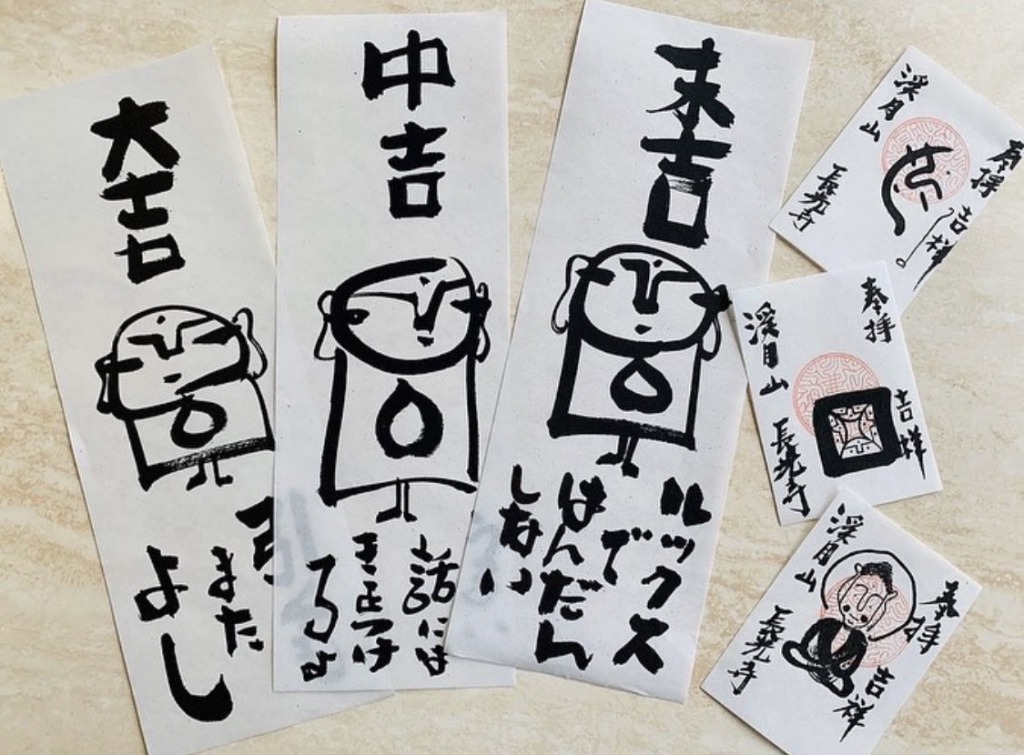 大吉
また
よし
中吉
話には
きをつけ
てるよ
末吉
ルックス
で
はんだん
しない
奉拝
吉祥
渓月山
長光寺
奉拝
吉祥
渓月山
長光寺
奉拝
吉祥
渓月山
長光寺